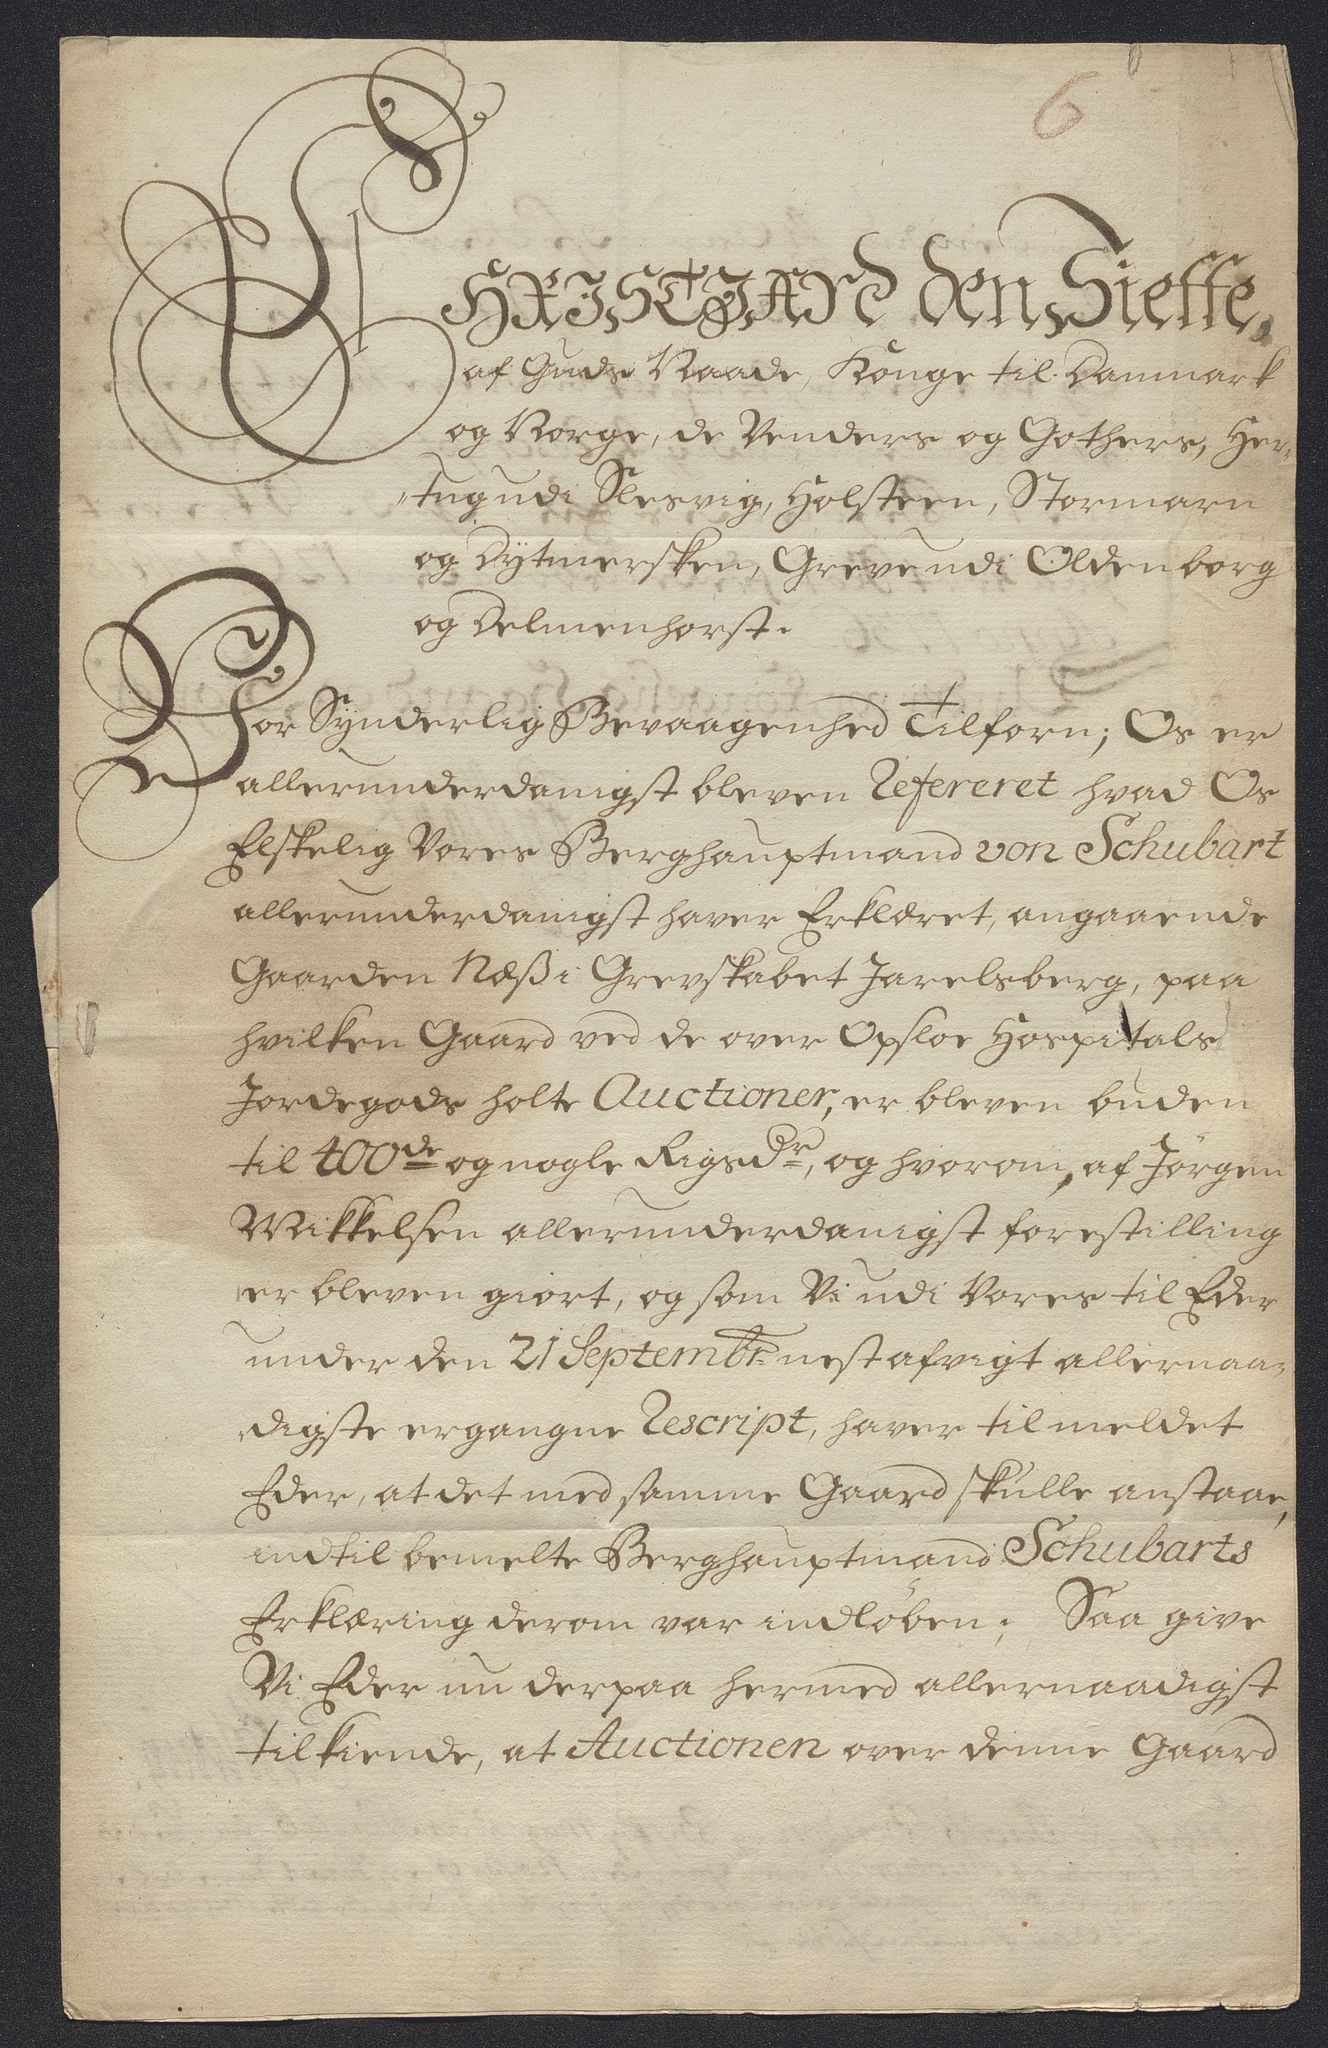 6
CHRISTJAN den Siette,
af Guds Naade, Konge til Danmark
og Norge, de Venders og Gothers, Her-
-tug udi Slesvig, Holsteen, Stormarn
og Dytmersken, Greve udi Oldenborg
og Delmenhorst.
Vor Synderlig Bevaagenhed Tilforn; Os er
allerunderdanigst bleven Refereret hvad Os
Elskelig Vores Berghauptmand von Schubart
allerunderdanigst haver Erklæret, angaaende
Gaarden Næß i Grevskabet Jarelsberg, paa
hvilken Gaard ved de over Opsloe Hospitals
Jordegods holte Auctioner, er bleven buden
til 400de og nogle Rigsdr, og hvorom, af Jörgen
Mikkelsen allerunderdanigst forestilling
er bleven giort, og som Vi udi Vores til Eder
under den 21 Septembr: nest afvigt allernaa-
digste ergangne Rescript, haver tilmeldet
Eder, at det med samme Gaard skulle anstaae,
indtil bemelte Berghauptmand Schubarts
Erklæring derom var indlöben; Saa give
Vi Eder nu derpaa hermed allernaadigst
tilkiende, at Auctionen over denne Gaard